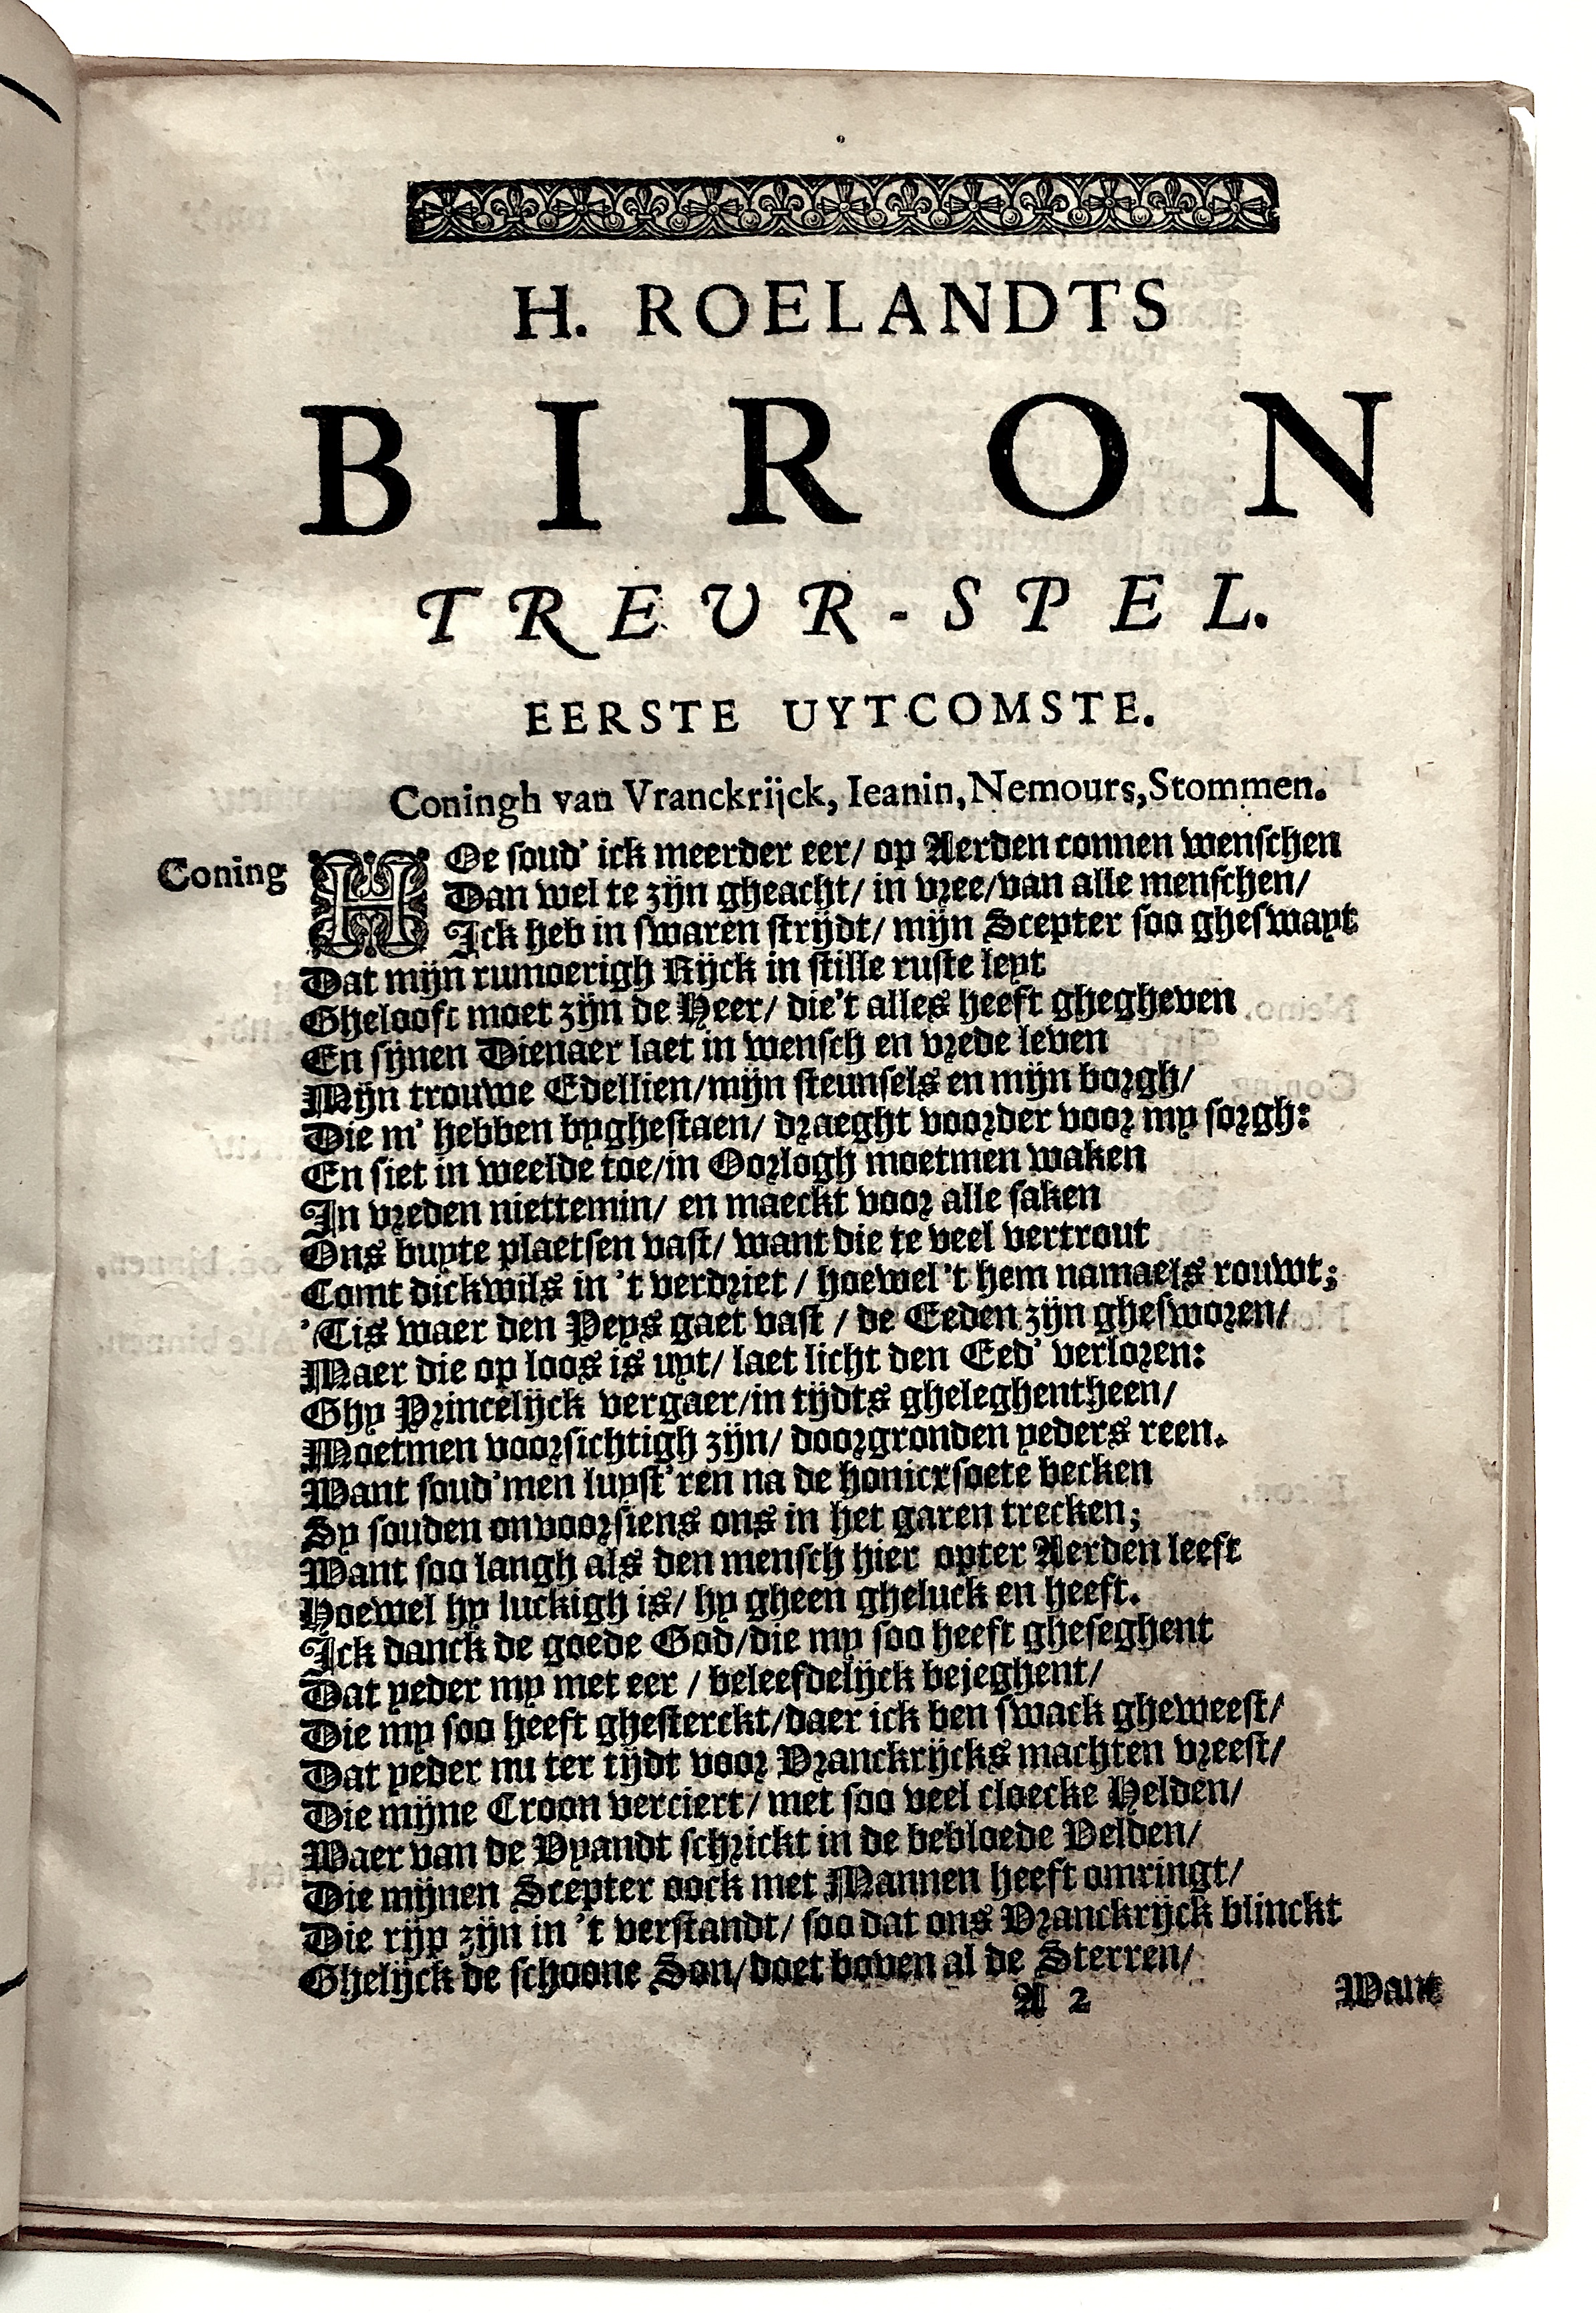 H. ROELANDTS
BIRON
TREUR-SPEL.
EERSTE UYTCOMSTE.
Coningh van Vranckrijck, Ieanin, Nemours, Stommen.
Coning HOe soud' ick meerder eer/ op Aerden connen wenschen
Dan wel te zijn gheacht/ in vree/van alle menschen/
Ick heb in swaren strijdt/ mijn Scepter soo gheswayt
Dat mijn rumoerigh Rijck in stille ruste leyt
Ghelooft moet zijn de Heer/ die't alles heeft ghegheven
En sijnen Dienaer laet in wensch en vrede leven
Mijn trouwe Edellien/mijn steunsels en mijn borgh/
Die m' hebben byghestaen/ draeght voorder voor my sorgh:
En siet in weelde toe/in Oorlogh moetmen waken
In vreden niettemin/ en maeckt voor alle saken
Ons buyte plaetsen vast/ want die te veel vertrout
Comt dickwils in 't verdriet / hoewel 't hem namaels rouwt;
'Tis waer den Peys gaet vast / de Eeden zijn ghesworen/
Maer die op loos is uyt/ laet licht den Eed' verloren:
Ghy Princelijck vergaer/in tijdts gheleghentheen/
Moetmen voorsichtigh zijn/ doorgronden yeders reen.
Want soud'men luyst'ren na de honicrsoete becken
Sy souden onvoorsiens ons in het garen trecken;
Want soo langh als den mensch hier opter Aerden leeft
Hoewel hy luckigh is/ hy gheen gheluck en heeft.
Ick danck de goede God/die my soo heeft gheseghent
Dat yeder my met eer / beleefdelijck bejeghent/
Die my soo heeft ghesterckt/daer ick ben swack gheweest/
Dat yeder nu ter tijdt voor Vranckrijcks machten vreest/
Die mijne Croon verciert/ met soo veel cloecke Helden/
Waer van de Vyandt schrickt in de bebloede Velden/
Die mijnen Scepter oock met Mannen heeft omringt/
Die rijp zijn in 't verstandt/ soo dat ons Vranckrijck blinckt
Ghelijck de schoone Son/doet boven al de Sterren/
A 2 Want